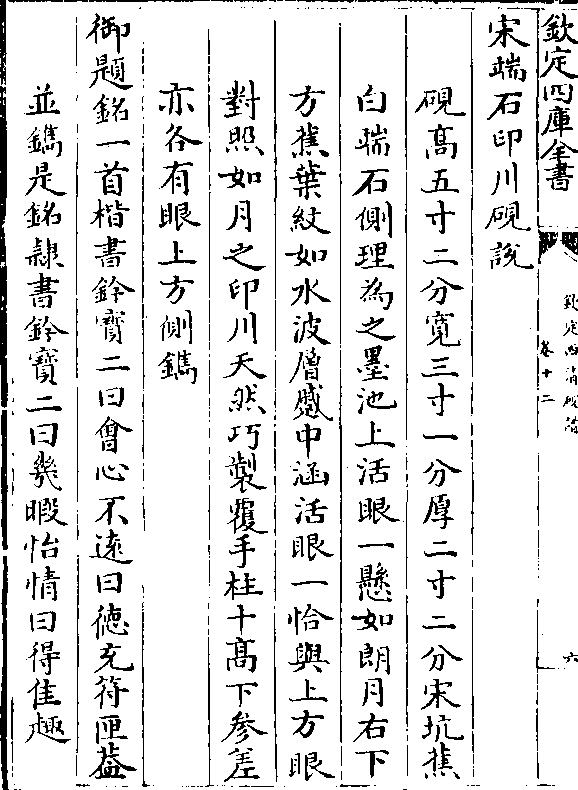 欽定四庫全書
欽定西清硯譜
卷十二
六
宋端石印川硯說
硯高五寸二分寬三寸一分厚二寸二分宋坑蕉
白端石側理為之墨池上活眼一懸如朗月右下
方蕉葉紋如水波層蹙中涵活眼一恰與上方眼
對照如月之印川天然巧製覆手柱十高下參差
亦各有眼上方側鐫
御題銘一首楷書鈐寶二曰會心不遠曰德充符匣葢
並鐫是銘隸書鈐寶二曰幾暇怡情曰得佳趣